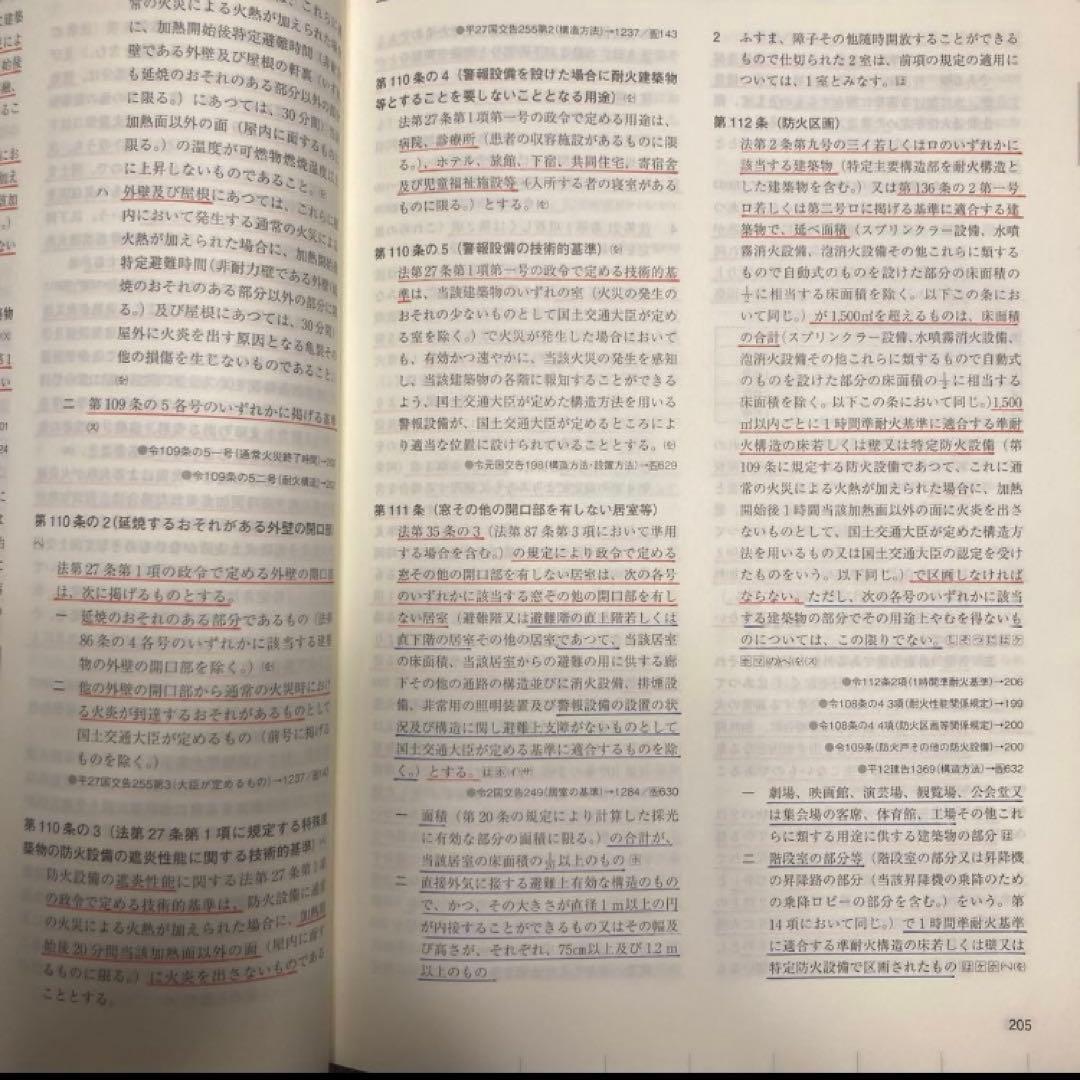 常の火災による火熱が加えられた場
に、加熱開始後特定避難時間（非
壁である外壁及び屋根の軒裏（い
も延焼のおそれのある部分以外の部
に限る。）にあつては、30分間）当該
加熱面以外の面（屋内に面するものに
限る。）の温度が可燃物燃焼温度以
に上昇しないものであること。
ハ 外壁及び屋根にあつては、これらに屋
内において発生する通常の火災によ
火熱が加えられた場合に、加熱開始後
特定避難時間（非耐力壁である外壁
焼のおそれのある部分以外の部分に
る。）及び屋根にあつては、30分間）
屋外に火炎を出す原因となる亀裂そ
他の損傷を生じないものであること。
二 第109条の5各号のいずれかに掲げる基準
●令109条の5一号(通常火災終了時間)→
●令109条の5二号(耐火構造)→
第110条の2（延焼するおそれがある外壁の開口部
法第27条第1項の政令で定める外壁の開口部
は、次に掲げるものとする。
一 延焼のおそれのある部分であるもの（法第
86条の4各号のいずれかに該当する建築
物の外壁の開口部を除く。）
二 他の外壁の開口部から通常の火災時におけ
る火炎が到達するおそれがあるものとして
国土交通大臣が定めるもの（前号に掲げる
ものを除く。）
●平27国交告255第3(大臣が定めるもの)→1237／
第110条の3（法第27条第1項に規定する特殊建
築物の防火設備の遮炎性能に関する技術的基準）
防火設備の遮炎性能に関する法第27条第1項
の政令で定める技術的基準は、防火設備に通常
の火災による火熱が加えられた場合に、加熱開
始後20分間当該加熱面以外の面（屋内に面す
るものに限る。）に火炎を出さないものである
こととする。
●平27国交告255第2(構造方法)→1237／告143
第110条の4（警報設備を設けた場合に耐火建築物
等とすることを要しないこととなる用途）
法第27条第1項第一号の政令で定める用途は、
病院、診療所（患者の収容施設があるものに限
る。）、ホテル、旅館、下宿、共同住宅、寄宿舎
及び児童福祉施設等（入所する者の寝室がある
ものに限る。）とする。
第110条の5（警報設備の技術的基準）
法第27条第1項第一号の政令で定める技術的基
準は、当該建築物のいずれの室（火災の発生の
おそれの少ないものとして国土交通大臣が定め
る室を除く。）で火災が発生した場合において
も、有効かつ速やかに、当該火災の発生を感知
し、当該建築物の各階に報知することができる
よう、国土交通大臣が定めた構造方法を用いる
警報設備が、国土交通大臣が定めるところによ
り適当な位置に設けられていることとする。
●令元国交告198(構造方法・設置方法)→告629
第111条（窓その他の開口部を有しない居室等）
法第35条の3（法第87条第3項において準用
する場合を含む。）の規定により政令で定める
窓その他の開口部を有しない居室は、次の各号
のいずれかに該当する窓その他の開口部を有し
ない居室（避難階又は避難階の直上階若しくは
直下階の居室その他の居室であつて、当該居室
の床面積、当該居室からの避難の用に供する廊
下その他の通路の構造並びに消火設備、排煙設
備、非常用の照明装置及び警報設備の設置の状
況及び構造に関し避難上支障がないものとして
国土交通大臣が定める基準に適合するものを除
く。）とする。
●令2国交告249(居室の基準)→1284／告630
一 面積（第20条の規定により計算した採光
に有効な部分の面積に限る。）の合計が、
当該居室の床面積の1/20以上のもの
二 直接外気に接する避難上有効な構造のもの
で、かつ、その大きさが直径1m以上の円
が内接することができるもの又はその幅及
び高さが、それぞれ、75cm以上及び1.2m
以上のもの
2 ふすま、障子その他随時開放することができる
もので仕切られた2室は、前項の規定の適用に
ついては、1室とみなす。
第112条（防火区画）
法第2条第九号の三イ若しくはロのいずれかに
該当する建築物（特定主要構造部を耐火構造と
した建築物を含む。）又は第136条の2第一号
ロ若しくは第二号ロに掲げる基準に適合する建
築物で、延べ面積（スプリンクラー設備、水噴
霧消火設備、泡消火設備その他これらに類する
もので自動式のものを設けた部分の床面積の
1/2に相当する床面積を除く。以下この条にお
いて同じ。）が1,500㎡を超えるものは、床面積
の合計（スプリンクラー設備、水噴霧消火設備、
泡消火設備その他これらに類するもので自動式
のものを設けた部分の床面積の1/2に相当する
床面積を除く。以下この条において同じ。）1,500
㎡以内ごとに1時間準耐火基準に適合する準耐
火構造の床若しくは壁又は特定防火設備（第
109条に規定する防火設備であつて、これに通
常の火災による火熱が加えられた場合に、加熱
開始後1時間当該加熱面以外の面に火炎を出さ
ないものとして、国土交通大臣が定めた構造方
法を用いるもの又は国土交通大臣の認定を受け
たものをいう。以下同じ。）で区画しなければ
ならない。ただし、次の各号のいずれかに該当
する建築物の部分でその用途上やむを得ないも
のについては、この限りでない。
●令112条2項(1時間準耐火基準)→206
●令108条の4 3項(耐火性能関係規定)→199
●令108条の4 4項(防火区画等関係規定)→200
●令109条(防火戸その他の防火設備)→200
●平12建告1369(構造方法)→告632
一 劇場、映画館、演芸場、観覧場、公会堂又
は集会場の客席、体育館、工場その他これ
らに類する用途に供する建築物の部分
二 階段室の部分等（階段室の部分又は昇降機
の昇降路の部分（当該昇降機の乗降のため
の乗降ロビーの部分を含む。）をいう。第
14項において同じ。）で1時間準耐火基準
に適合する準耐火構造の床若しくは壁又は
特定防火設備で区画されたもの
205